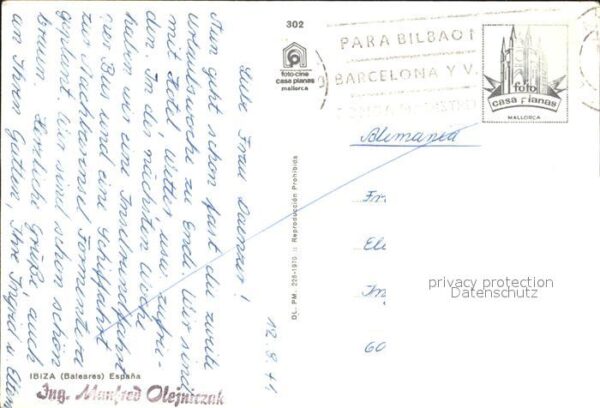 302
foto-cine
casa planas
mallorca
PARA BILBAO
BARCELONA Y V
foto
casa planas
MALLORCA
Alemania
Fr
El
60
privacy protection
Datenschutz
DL. PM. 228-1970 :: Reproducción Prohibida
12.9.71
Liebe Frau Daenzer!
Nun geht schon fast die zweite
Urlaubswoche zu Ende. Wir sind
mit Hotel, Wetter usw. zufrie-
den. In der nächsten Woche
haben wir eine Inselrundfahrt
per Bus und eine Schiffahrt
zur Nachbarinsel Formentera
geplant. Wir sind schon schön
braun. Herzliche Grüße, auch
an Ihren Gatten, Ihre Ingrid u. Eltern
IBIZA (Baleares) España
Ing. Manfred Olejniczak